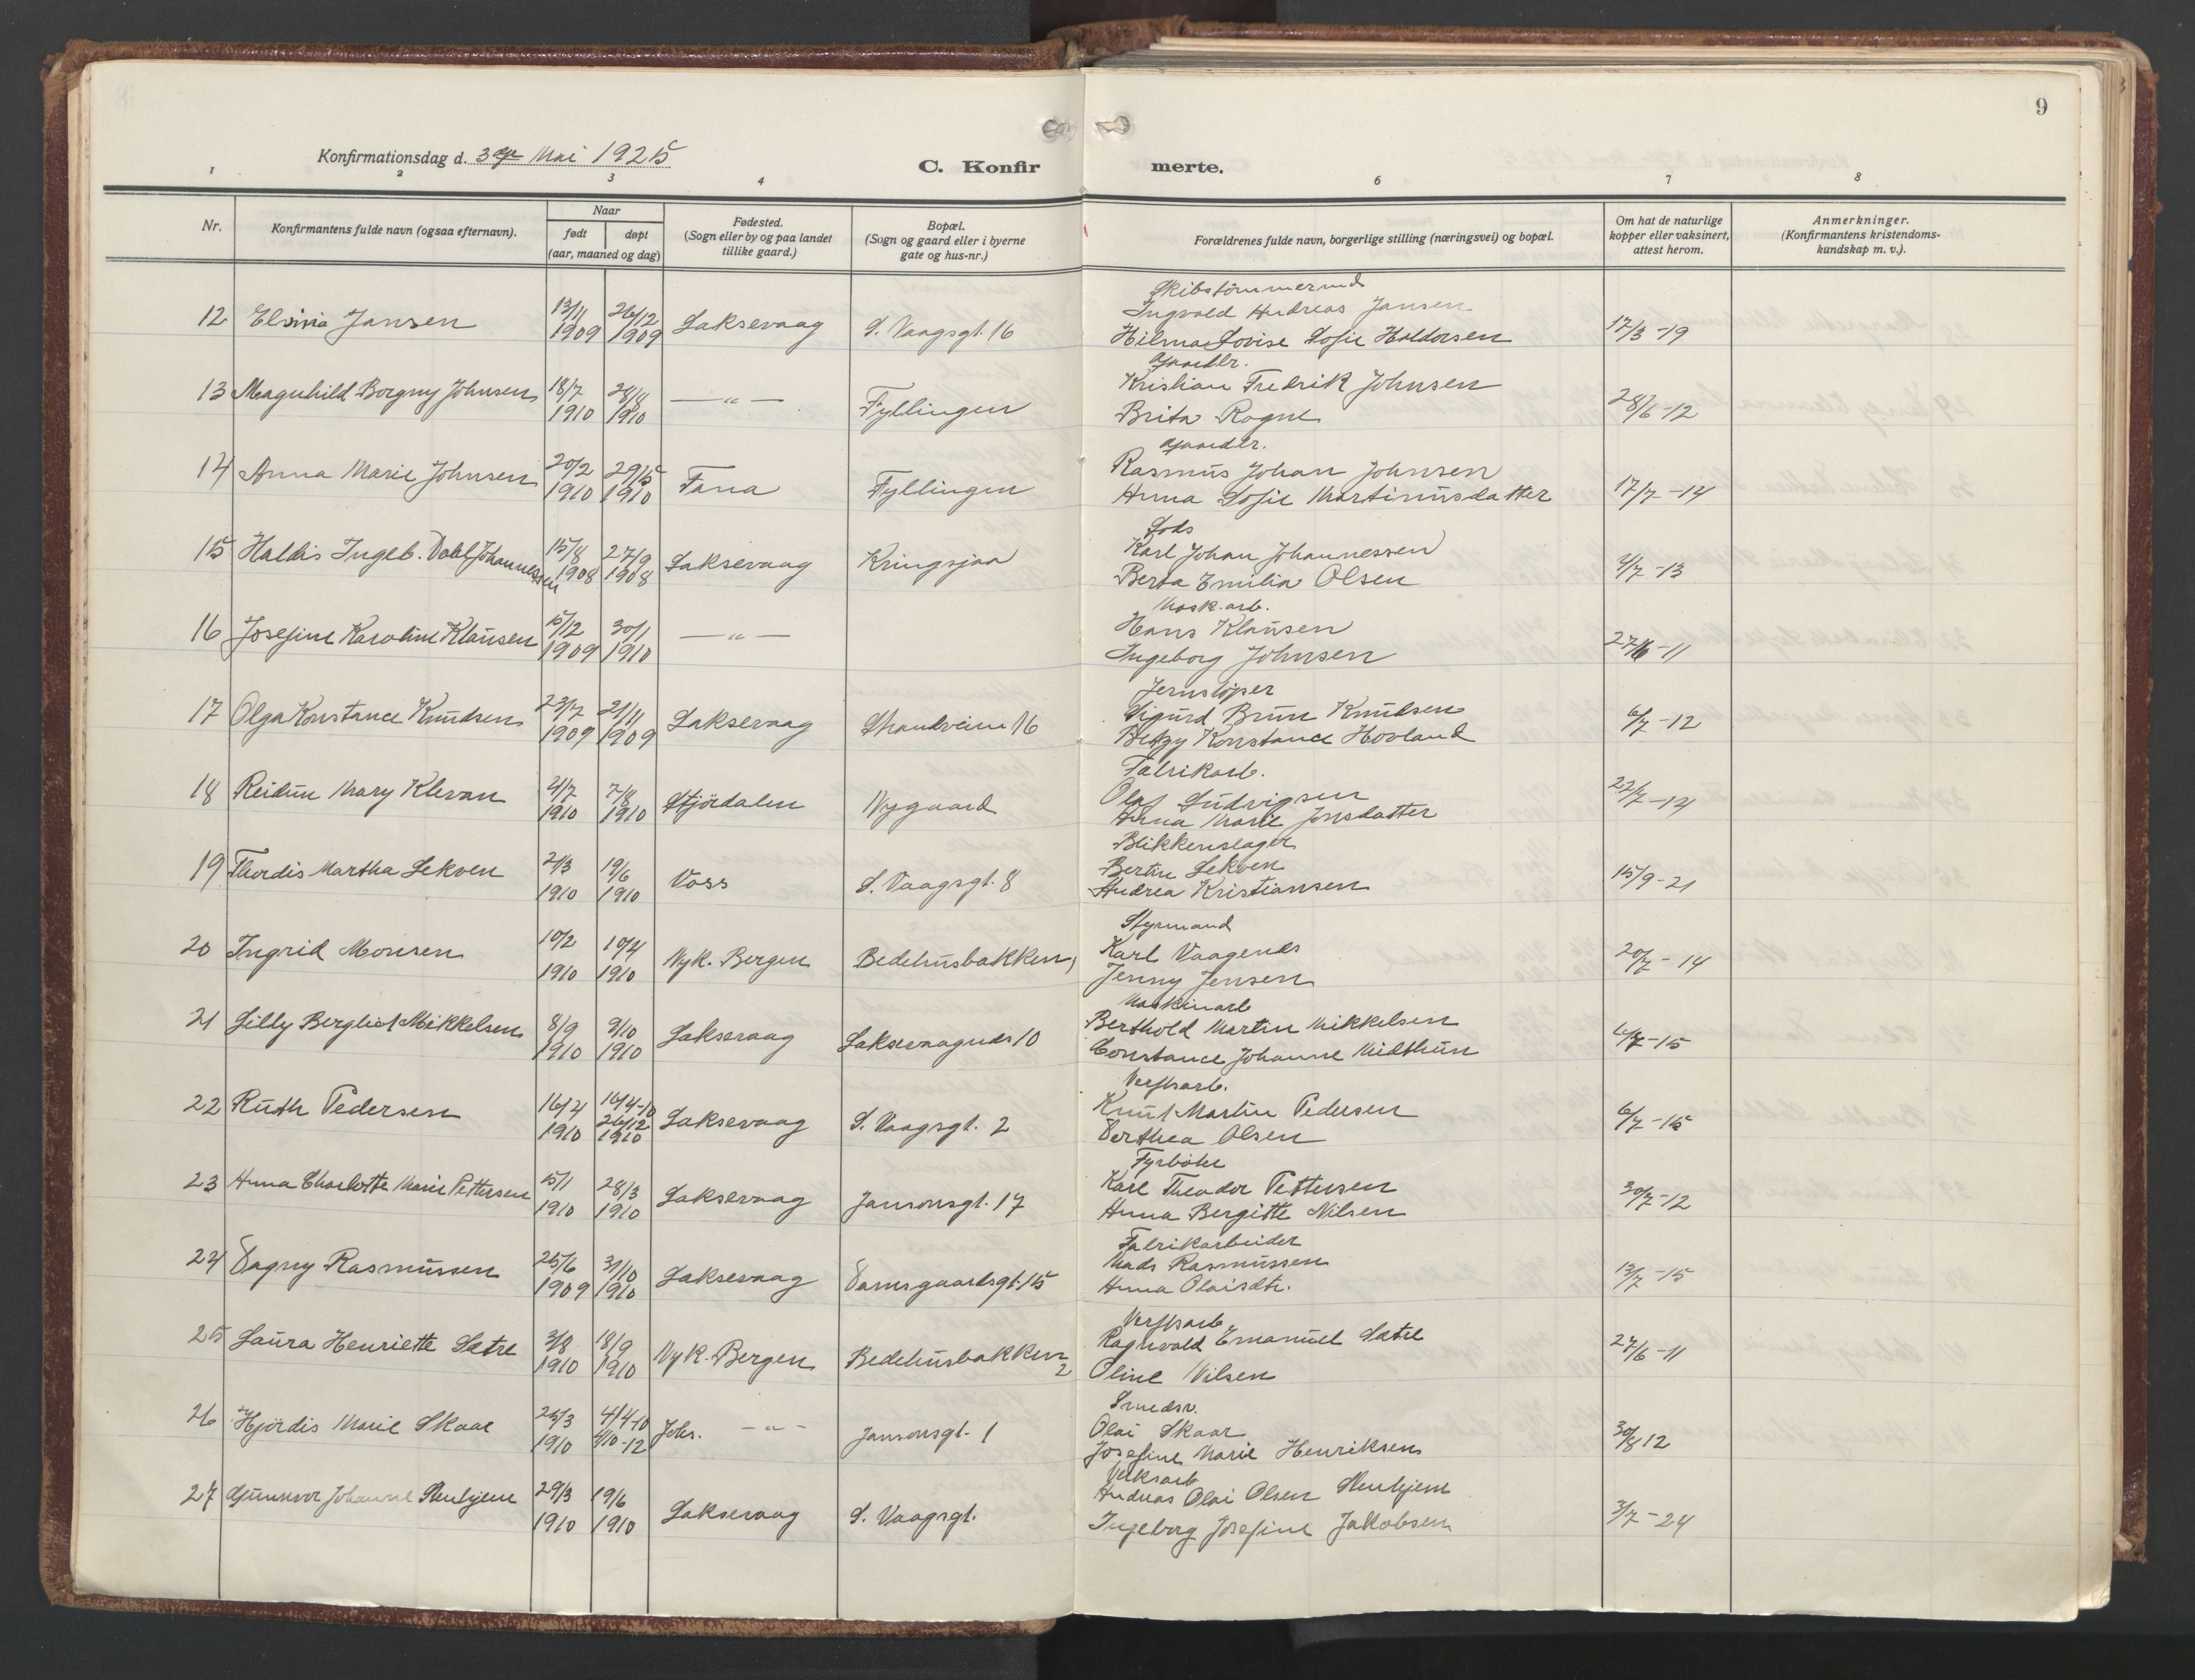 9
Konfirmationsdag d. 3dje Mai 1925
C. Konfirmerte.
1 2 3 4 6 7 8
Nr. Konfirmantens fulde navn (ogsaa efternavn). Naar født døpt (aar, maaned og dag) Fødested. (Sogn eller by og paa landet tillike gaard.) Bopæl. (Sogn og gaard eller i byerne gate og hus-nr.) Forældrenes fulde navn, borgerlige stilling (næringsvei) og bopæl. Om hat de naturlige kopper eller vaksinert, attest herom. Anmerkninger. (Konfirmantens kristendomskundskap m. v.).
Skibstömmermd
12 Elvinia Jansen 13/11 1909 26/12 1909 Laksevaag S. Vaagsgt. 16 Ingvald Andreas Jansen
Hilma Lovise Sofie Haldorsen 17/3-19
Gaardbr.
13 Magnhild Borgny Johnsen 18/7 1910 28/8 1910 —"— Fyllingen Kristian Fredrik Johnsen
Brita Rogne 28/6-12
Gaardbr.
14 Anna Marie Johnsen 20/2 1910 29/5 1910 Fana Fyllingen Rasmus Johan Johnsen
Anna Sofie Martinusdatter 17/7-14
Lods
15 Haldis Ingeb. Dahl Johannessen 15/8 1908 27/9 1908 Laksevaag Kringsjaa Karl Johan Johannessen
Berta Emilia Olsen 4/7-13
Mask.arb.
16 Josefine Karoline Klausen 5/12 1909 30/1 1910 —"— Hans Klausen
Ingeborg Johnsen 27/6-11
Jernstöper
17 Olga Konstance Knudsen 23/7 1909 21/11 1909 Laksevaag Strandveien 16 Sigurd Brun Knudsen
Betzy Konstance Hovland 6/7-12
Fabrikarb.
18 Reidun Mary Klevan 4/7 1910 7/8 1910 Stjördalen Nygaard Olaf Ludvigsen
Anna Marie Jonsdatter 22/7-14
Blikkenslager
19 Thordis Martha Lekven 2/3 1910 19/6 1910 Voss S. Vaagsgt. 8 Bertin Lekven
Andrea Kristiansen 15/9-21
Styrmand
20 Ingrid Monsen 10/2 1910 10/4 1910 Nyk. Bergen Bedehusbakken, Karl Vaagenes
Jenny Jensen 20/7-14
Maskinarb
21 Lilly Bergliot Mikkelsen 8/9 1910 9/10 1910 Laksevaag Laksevaagnes 10 Berthold Martin Mikkelsen
Constance Johanne Midthun 4/7-15
Verftsarb.
22 Ruth Pedersen 16/4 1910 16/4-10 26/12 1910 Laksevaag S. Vaagsgt. 2 Knut Martin Pedersen
Dorthea Olsen 6/7-15
Fyrböter
23 Anna Charlotte Marie Pettersen 5/1 1910 28/3 1910 Laksevaag Jansonsgt. 17 Karl Theodor Pettersen
Anna Bergitte Nilsen 30/7-12
Fabrikarbeider
24 Dagny Rasmussen 25/6 1909 31/10 1910 Laksevaag Damsgaardsgt. 15 Mads Rasmussen
Anna Olaisdtr. 13/7-15
Verftsarb.
25 Laura Henriette Sætre 3/8 1910 18/9 1910 Nyk. Bergen Bedehusbakken 2 Ragnvald Emanuel Sætre
Oline Nilsen 27/6-11
Smedsv.
26 Hjördis Marie Skaar 25/3 1910 4/4-10 4/10-12 Johs. -"- Jansonsgt. 1 Olai Skaar
Josefine Marie Henriksen 30/8 12
Verksarb
27 Gunnvor Johanne Stenhjem 29/3 1910 19/6 1910 Laksevaag S. Vaagsgt. Andreas Olai Olsen Stenhjem
Ingeborg Josefine Jakobsen 3/7-24